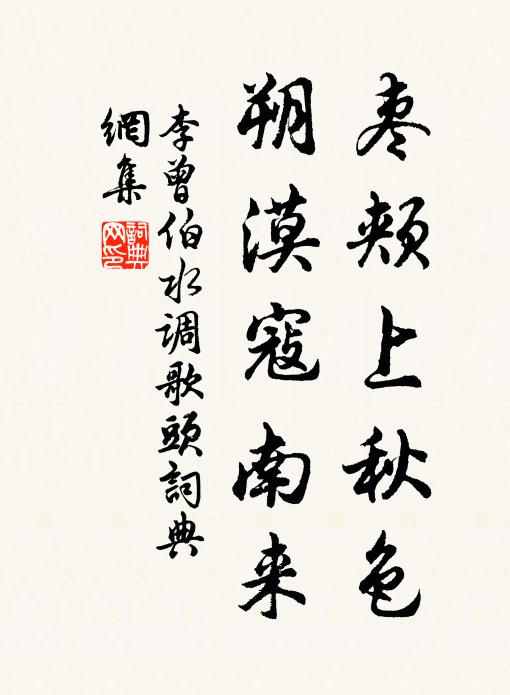 枣颊上秋色
朔漠寇南来
李曾伯水调歌頭詞典
網集
詞典网印